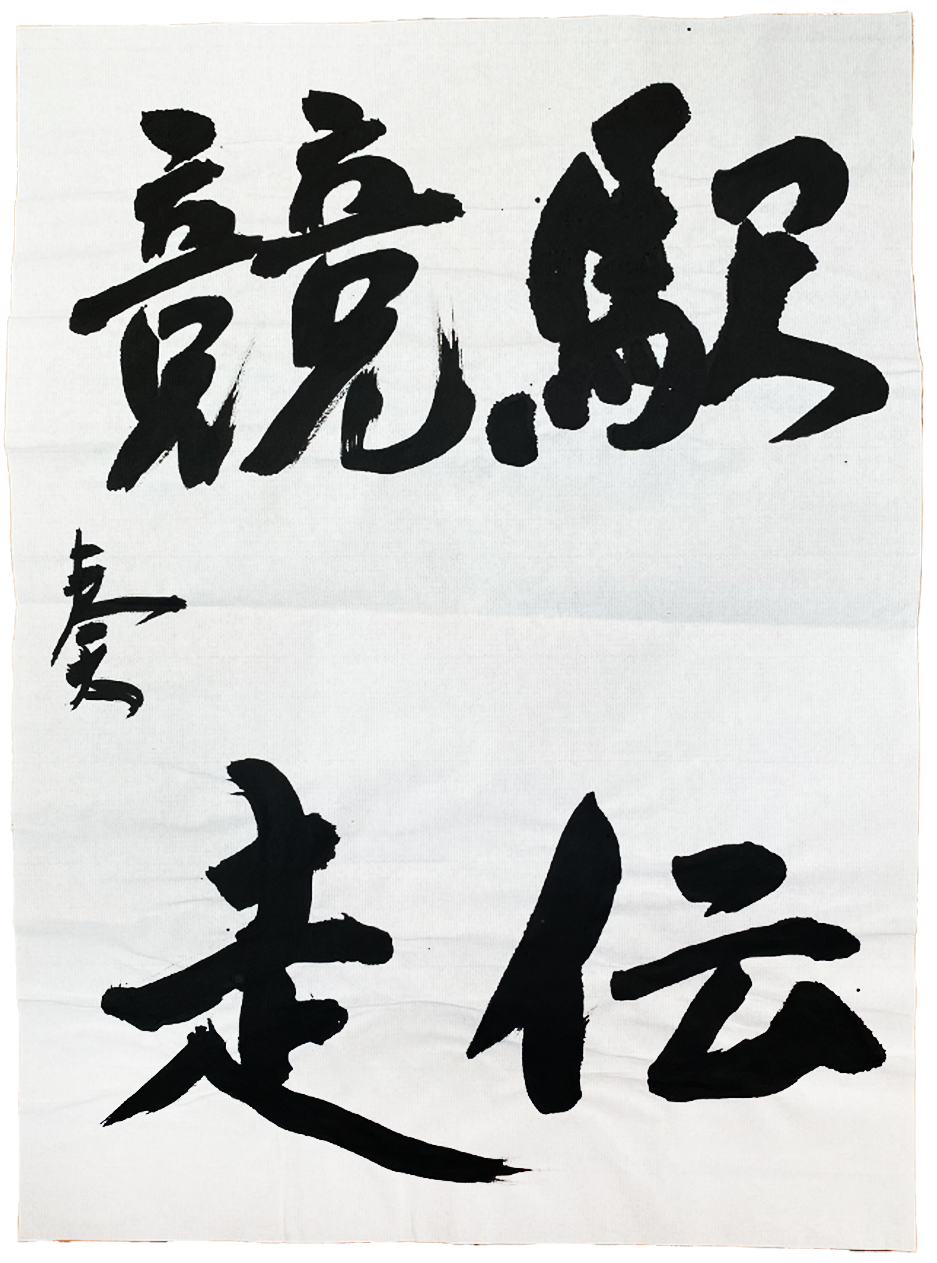 駅伝
競走
奏